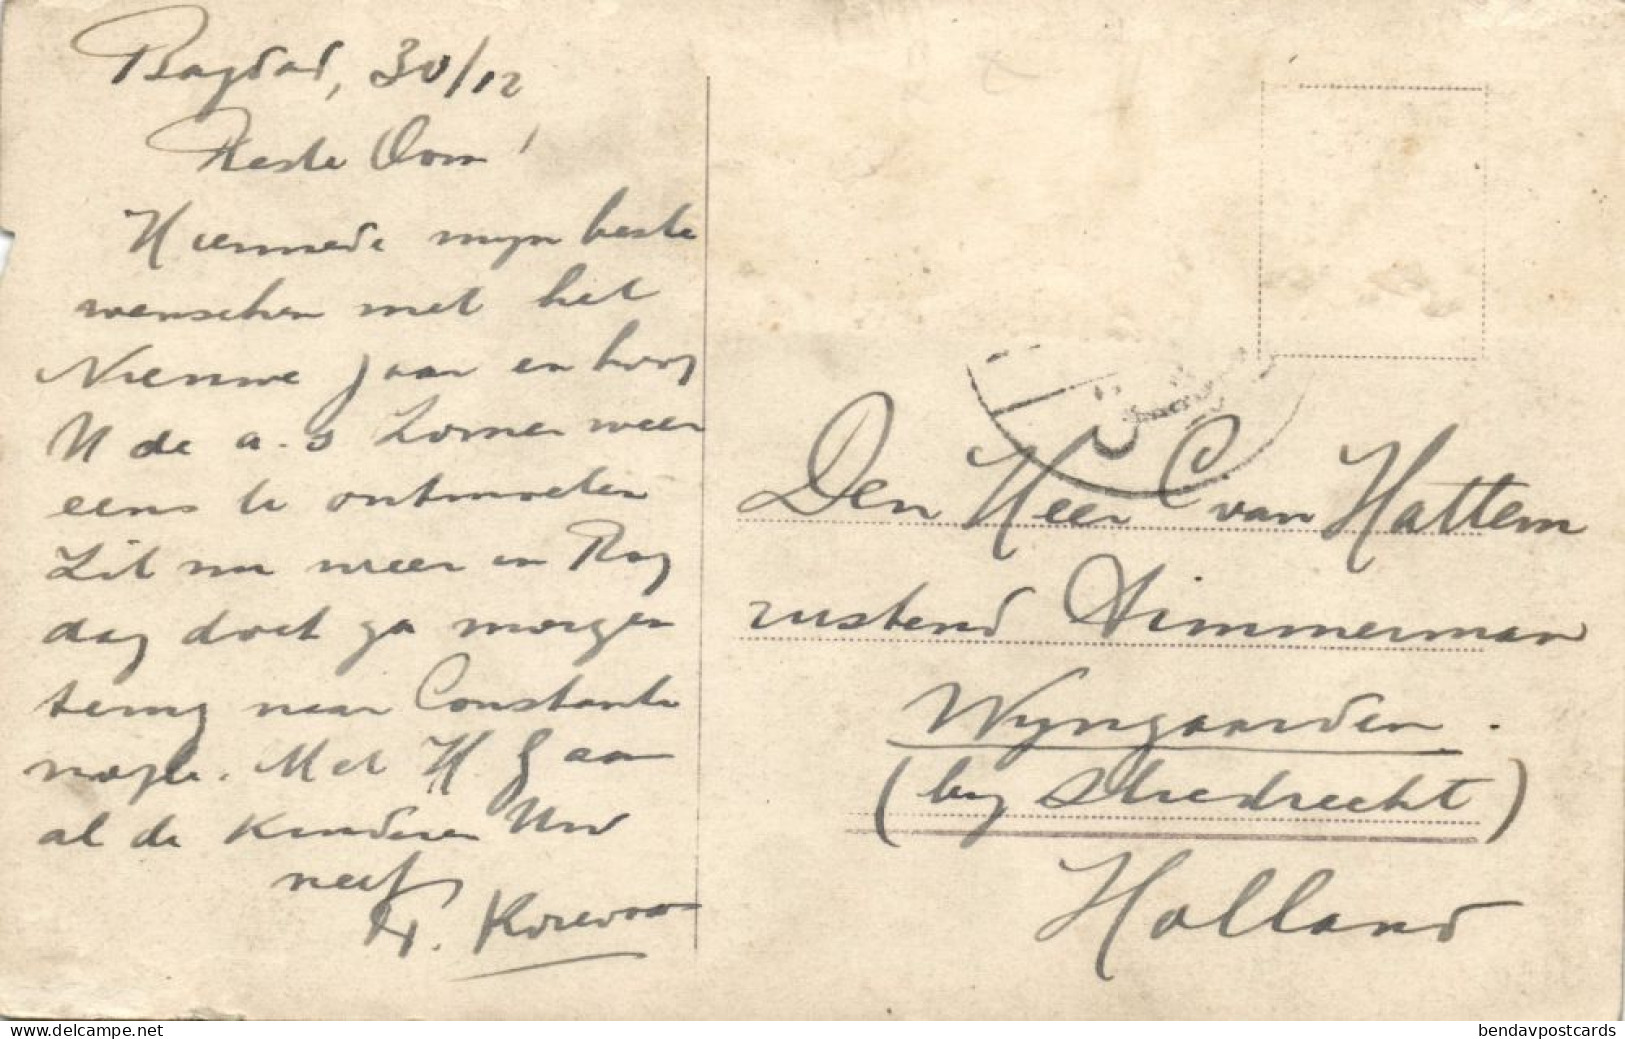 Bagdad, 30/12
Beste Oom!
Hiermede mijn beste
wenschen met het
Nieuwe jaar en hoop
U de a.s. Zomer weer
eens te ontmoeten
Zit nu weer in Bag
dag doch ga morgen
terug naar Constanti
nople. Met H. G aan
al de kinderen Uw
neef
Den Heer C van Hattem
rustend Timmerman
Wijngaarden.
(bij Sliedrecht)
Holland
www.delcampe.net
bendavpostcards